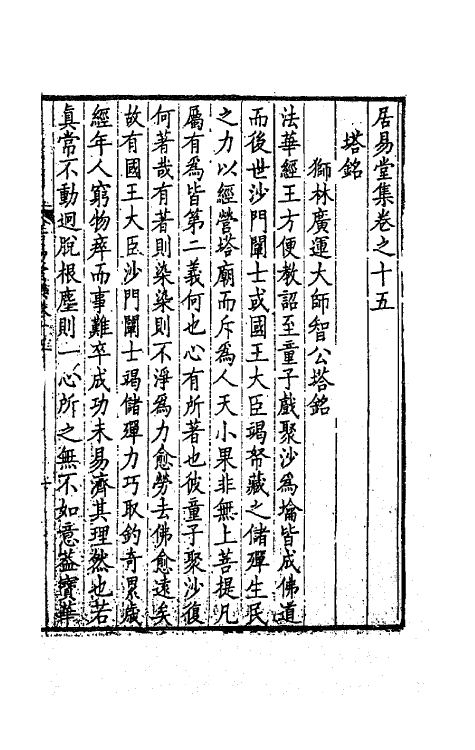 居易堂集卷之十五
塔銘
獅林廣運大師智公塔銘
法華經王方便教詔至童子戲聚沙爲墖皆成佛道
而後世沙門闡士或國王大臣竭帑藏之儲殫生民
之力以經營塔廟而斥爲人天小果非無上菩提凡
屬有爲皆第二義何也心有所著也彼童子聚沙復
何著哉有著則染染則不淨爲力愈勞去佛愈遠矣
故有國王大臣沙門闡士竭儲殫力巧取釣奇累歲
經年人窮物瘁而事難卒成功未易濟其理然也若
眞常不動迥脫根塵則一心所之無不如意葢寶華